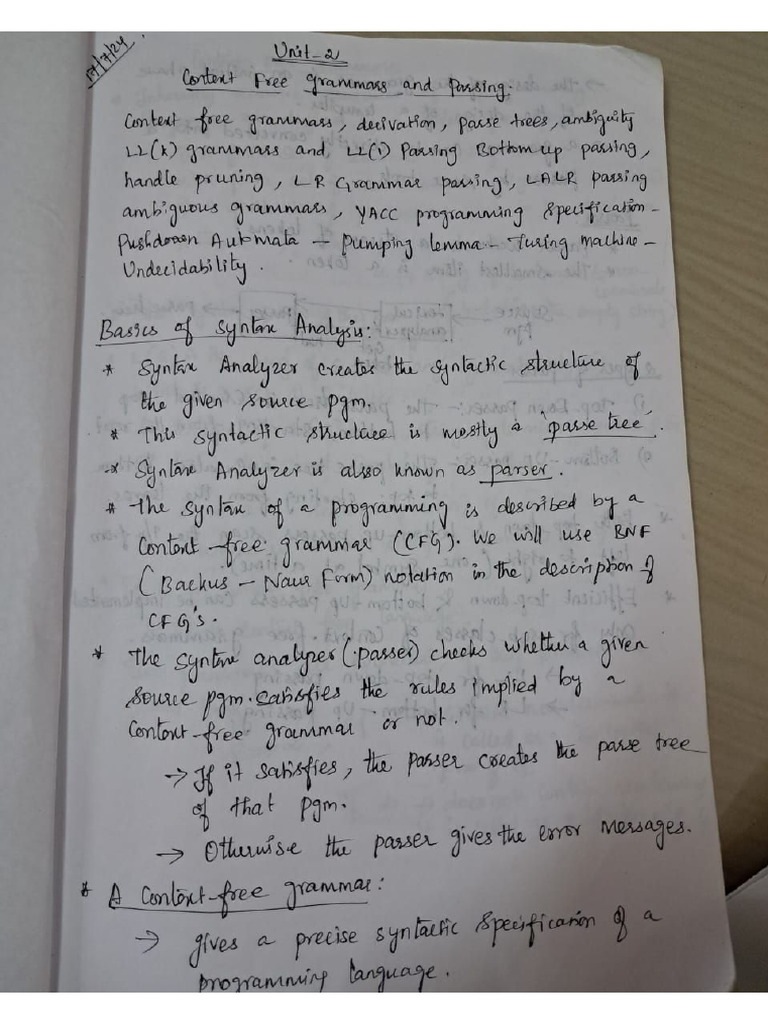 17/7/24.
Unit-2
Context Free grammars and Parsing.
Context free grammars, derivation, parse trees, ambiguity
LL(k) grammars and LL(1) Parsing Bottom up parsing,
handle pruning, LR Grammar parsing, LALR parsing
ambiguous grammars, YACC programming specification-
Pushdown Automata - Pumping lemma - Turing machine -
Undecidability.
Basics of Syntax Analysis:
* Syntax Analyzer creates the syntactic structure of
the given source pgm.
* This syntactic structure is mostly a parse tree.
* Syntax Analyzer is also known as parser.
* The syntax of a programming is described by a
Context-free grammar (CFG). We will use BNF
(Backus - Naur Form) notation in the description of
CFG's.
* The syntax analyzer (parser) checks whether a given
source pgm. satisfies the rules implied by a
Context-free grammar or not.
→ If it satisfies, the parser creates the parse tree
of that pgm.
→ Otherwise the parser gives the error messages.
* A Context-free grammar:
→ gives a precise syntactic specification of a
programming language.